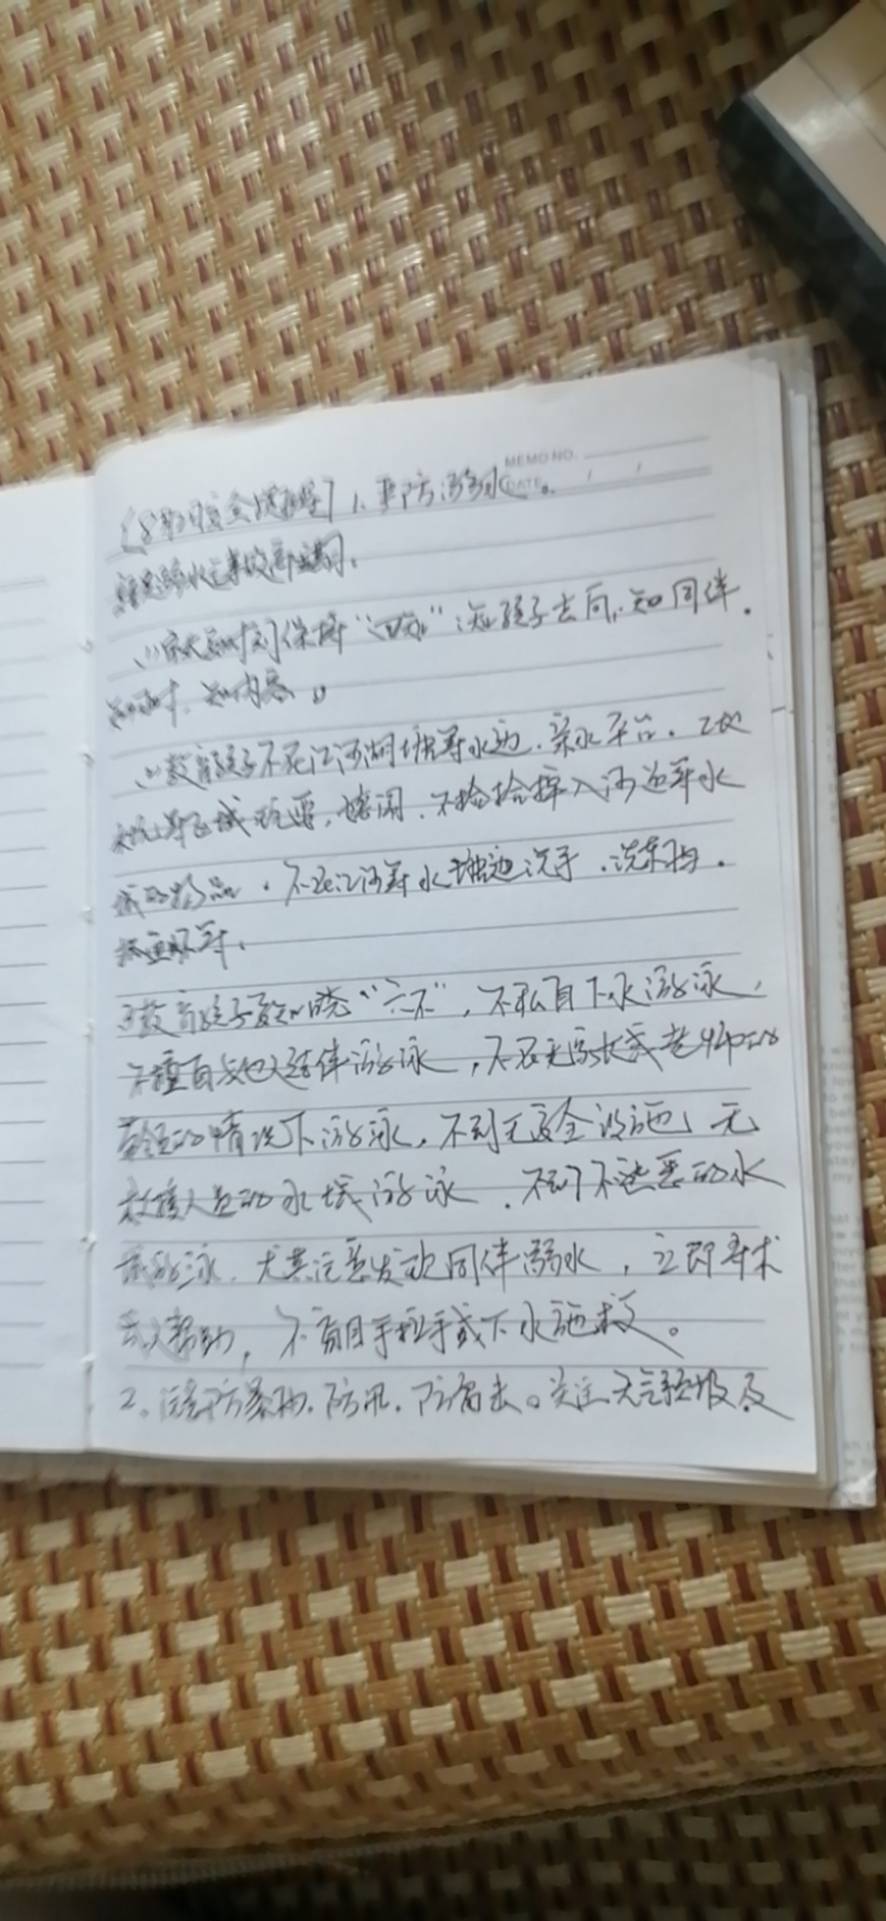 MEMO NO.
DATE
1、严防溺水。
溺水事故高
(1)家长时刻保持“四知”:知孩子去向,知同伴,
知 时,知内容。
(2)教育孩子不在江河湖塘等水边、亲水平台、
等区域玩耍,嬉闹,不捡拾掉入河边等水
域的物品,不在江河等水塘边洗手,洗东西,
等。
3教育孩子 知晓“六不”,不私自下水游泳,
不擅自与他人结伴游泳,不在无家长或老师
带领的情况下游泳,不到无安全设施、无
救援人员的水域游泳,不到不熟悉的水
域游泳,尤其注意发现同伴溺水,立即寻求
大人帮助,不盲目手拉手或下水施救。
2、 防暴雨,防汛,防雷击。关注天气预报及